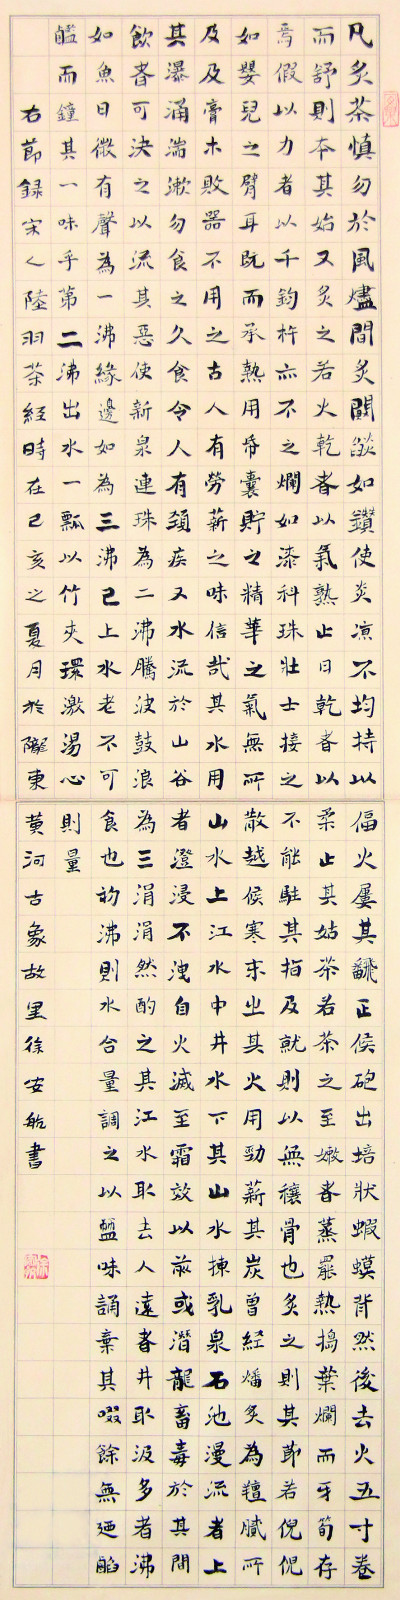 凡炙茶慎勿於風燼間炙闕焰如鑽使炎凉不均持以偪火屢其飜正侯砲出培狀蝦蟆背然後去火五寸卷
而舒則本其始又炙之若火乾者以氣熟止日乾者以柔止其姑茶若茶之至嫩者蒸罷熱搗葉爛而牙筍存
焉假以力者以千鈞杵亦不之爛如漆科珠壯士接之不能駐其指及就則以無穰骨也炙之則其節若倪倪
如嬰兒之臂耳既而承熱用帋囊貯之精華之氣無所散越候寒末出其火用勁薪其炭曾經燔炙為羶膩所
及及膏木敗器不用之古人有勞薪之味信哉其水用山水上江水中井水下其山水揀乳泉石池漫流者上
其瀑涌湍漱勿食之久食令人有頸疾又水流於山谷者澄浸不洩自火滅至霜效以前或潛龍畜毒於其間
飲者可決之以流其惡使新泉連珠為二沸騰波鼓浪為三涓涓然酌之其江水取去人遠者井取汲多者沸
如魚日微有聲為一沸緣邊如為三沸已上水老不可食也初沸則水合量調之以鹽味誦棄其啜餘無迺䤘
而鐘其一味乎第二沸出水一瓢以竹夾環激湯心則量
右節録宋人陸羽茶經時在己亥之夏月於隴東黄河古象故里徐安航書